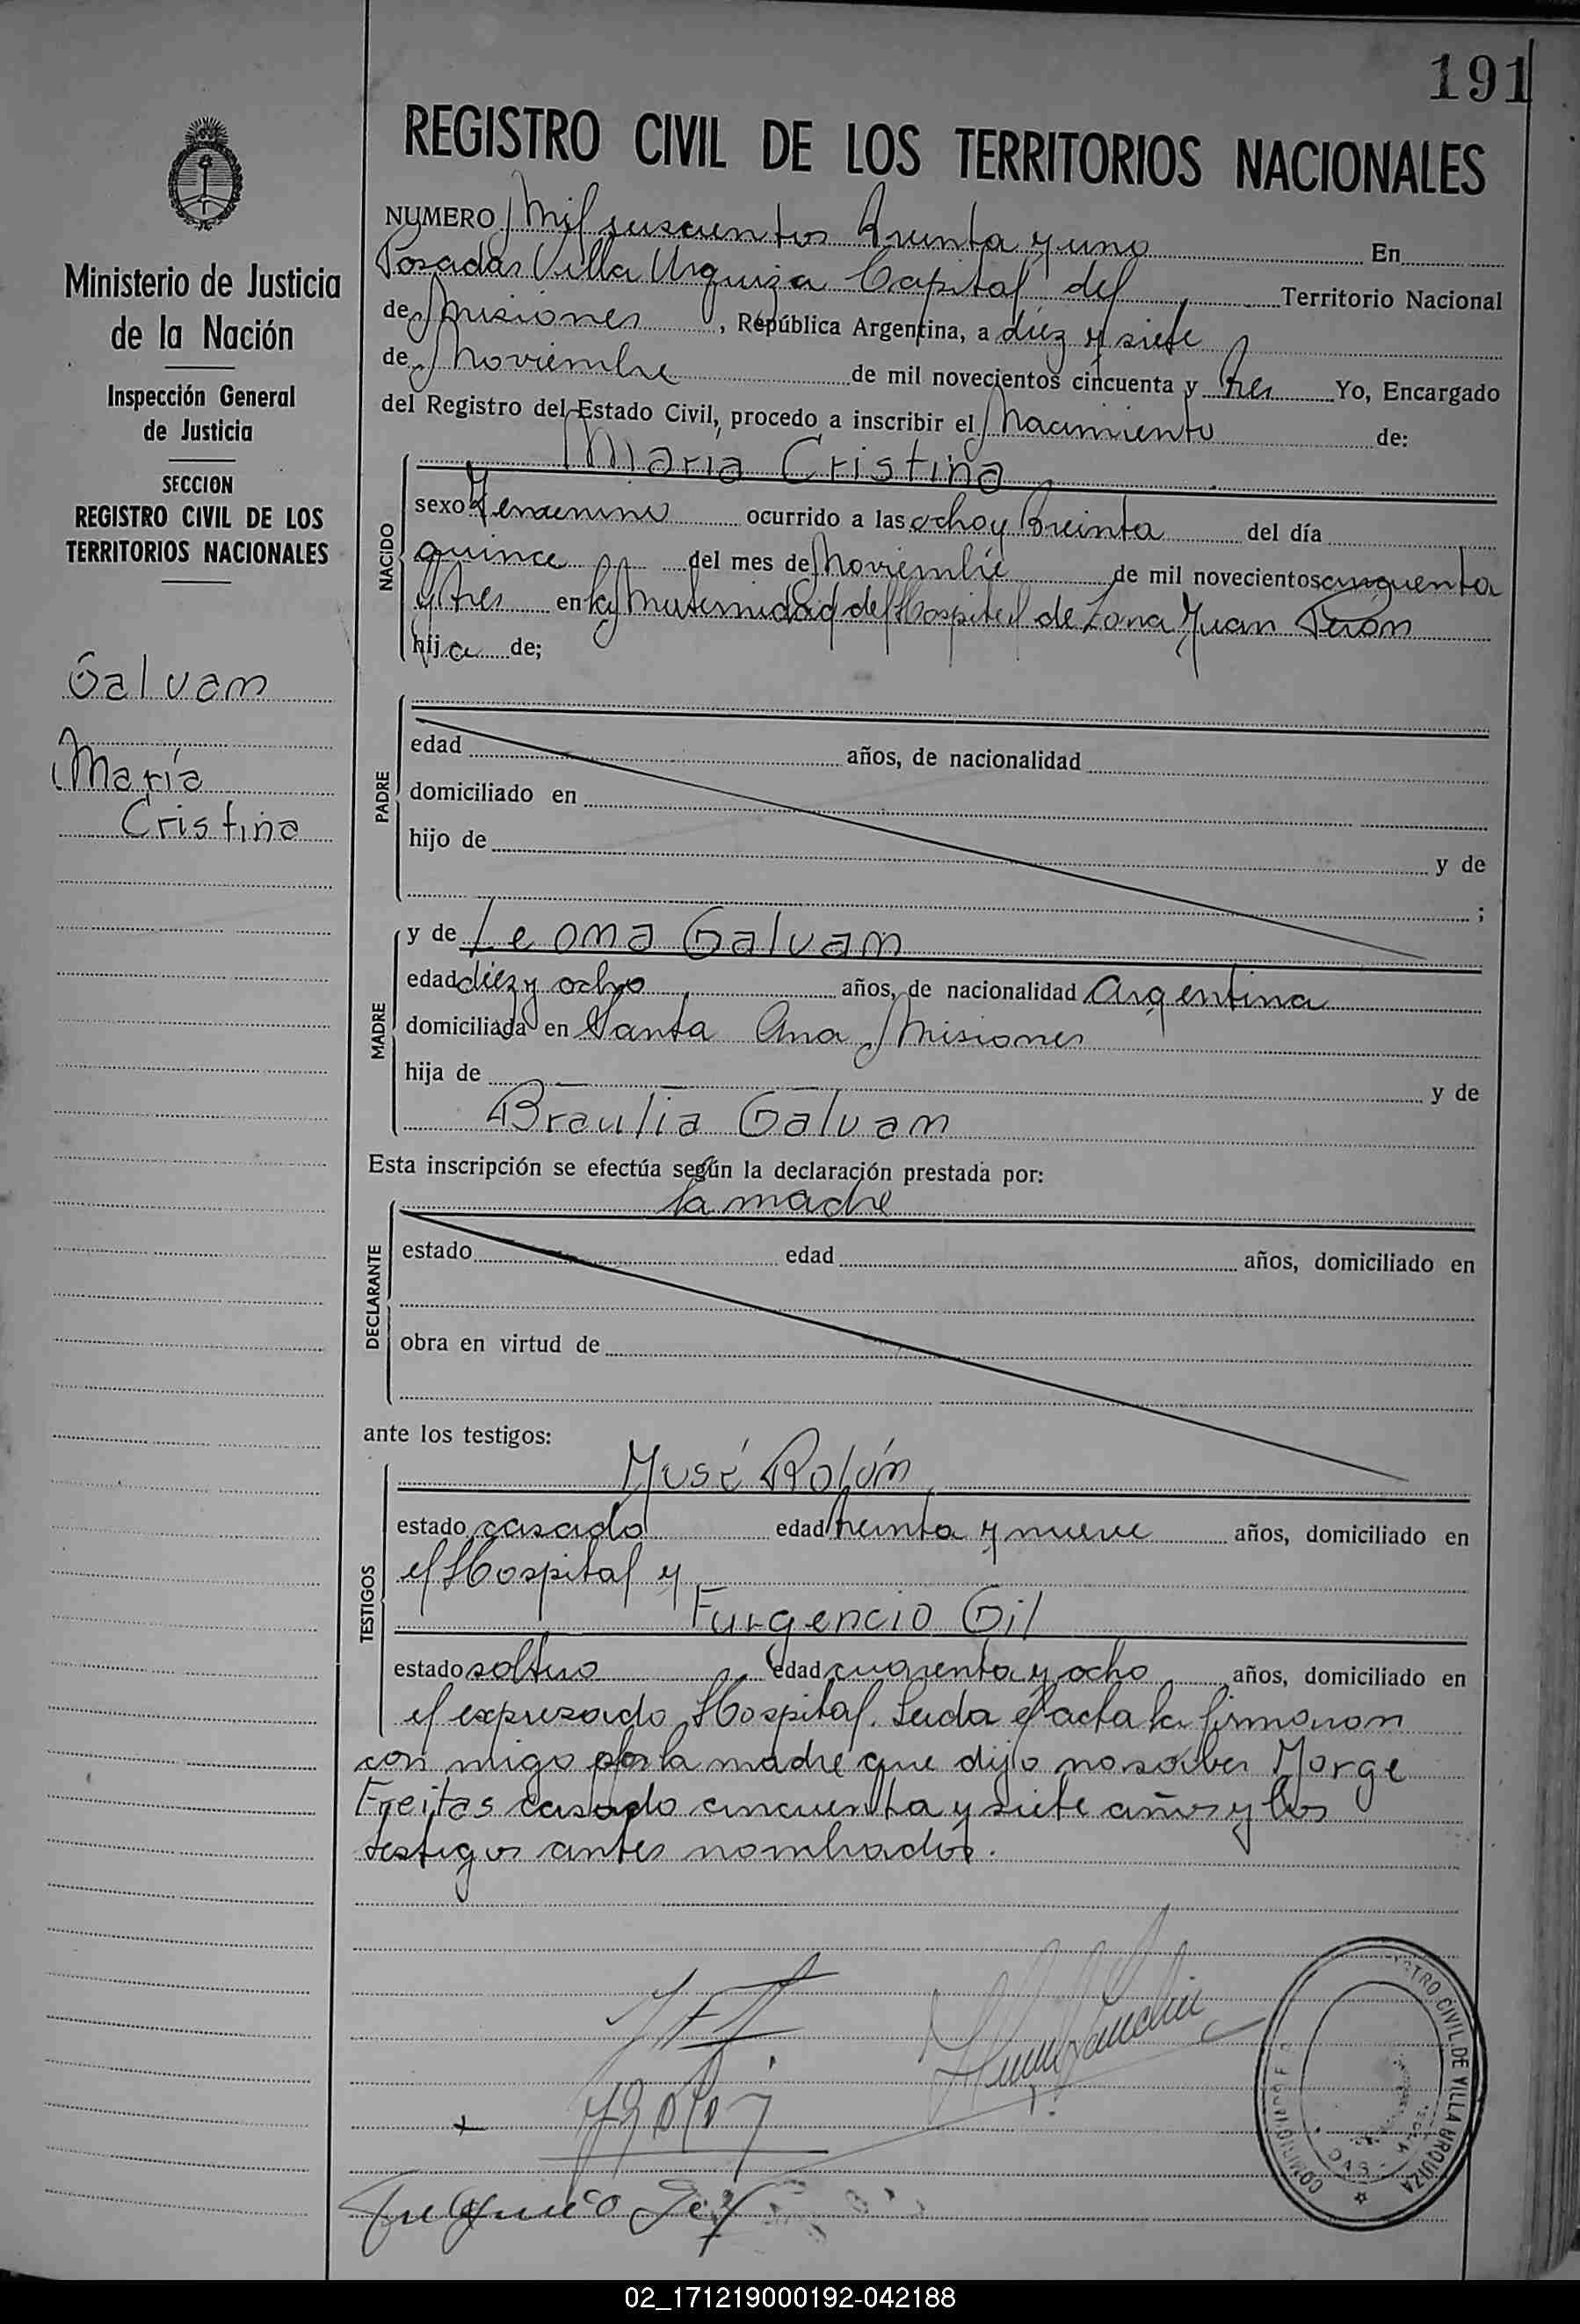 191
REGISTRO CIVIL DE LOS TERRITORIOS NACIONALES
Ministerio de Justicia
de la Nación
Inspección General
de Justicia
SECCION
REGISTRO CIVIL DE LOS
TERRITORIOS NACIONALES
Galvam
María
Cristina
NUMERO Mil seiscientos treinta y uno En
Posadas Villa Urquiza Capital del Territorio Nacional
de Misiones, República Argentina, a diez y siete
de Noviembre de mil novecientos cincuenta y tres Yo, Encargado
del Registro del Estado Civil, procedo a inscribir el Nacimiento de:
NACIDO
María Cristina
sexo Femenino ocurrido a las ocho y treinta del día
quince del mes de Noviembre de mil novecientos cincuenta
y tres en la Maternidad del Hospital de Zona Juan Perón
hija de;
PADRE
edad años, de nacionalidad
domiciliado en
hijo de y de
;
MADRE
y de Leona Galvam
edad diez y ocho años, de nacionalidad Argentina
domiciliada en Santa Ana Misiones
hija de y de
Braulia Galvam
Esta inscripción se efectúa según la declaración prestada por:
DECLARANTE
la madre
estado edad años, domiciliado en
obra en virtud de
ante los testigos:
TESTIGOS
José Rolón
estado casado edad treinta y nueve años, domiciliado en
el Hospital y
Furgencio Gil
estado soltero edad cuarenta y ocho años, domiciliado en
el expresado Hospital. Leida el acta la firmaron
con migo por la madre que dijo no saber Jorge
Freitas casado cincuenta y siete años y los
testigos antes nombrados.
REGISTRO CIVIL DE VILLA URQUIZA
02_171219000192-042188